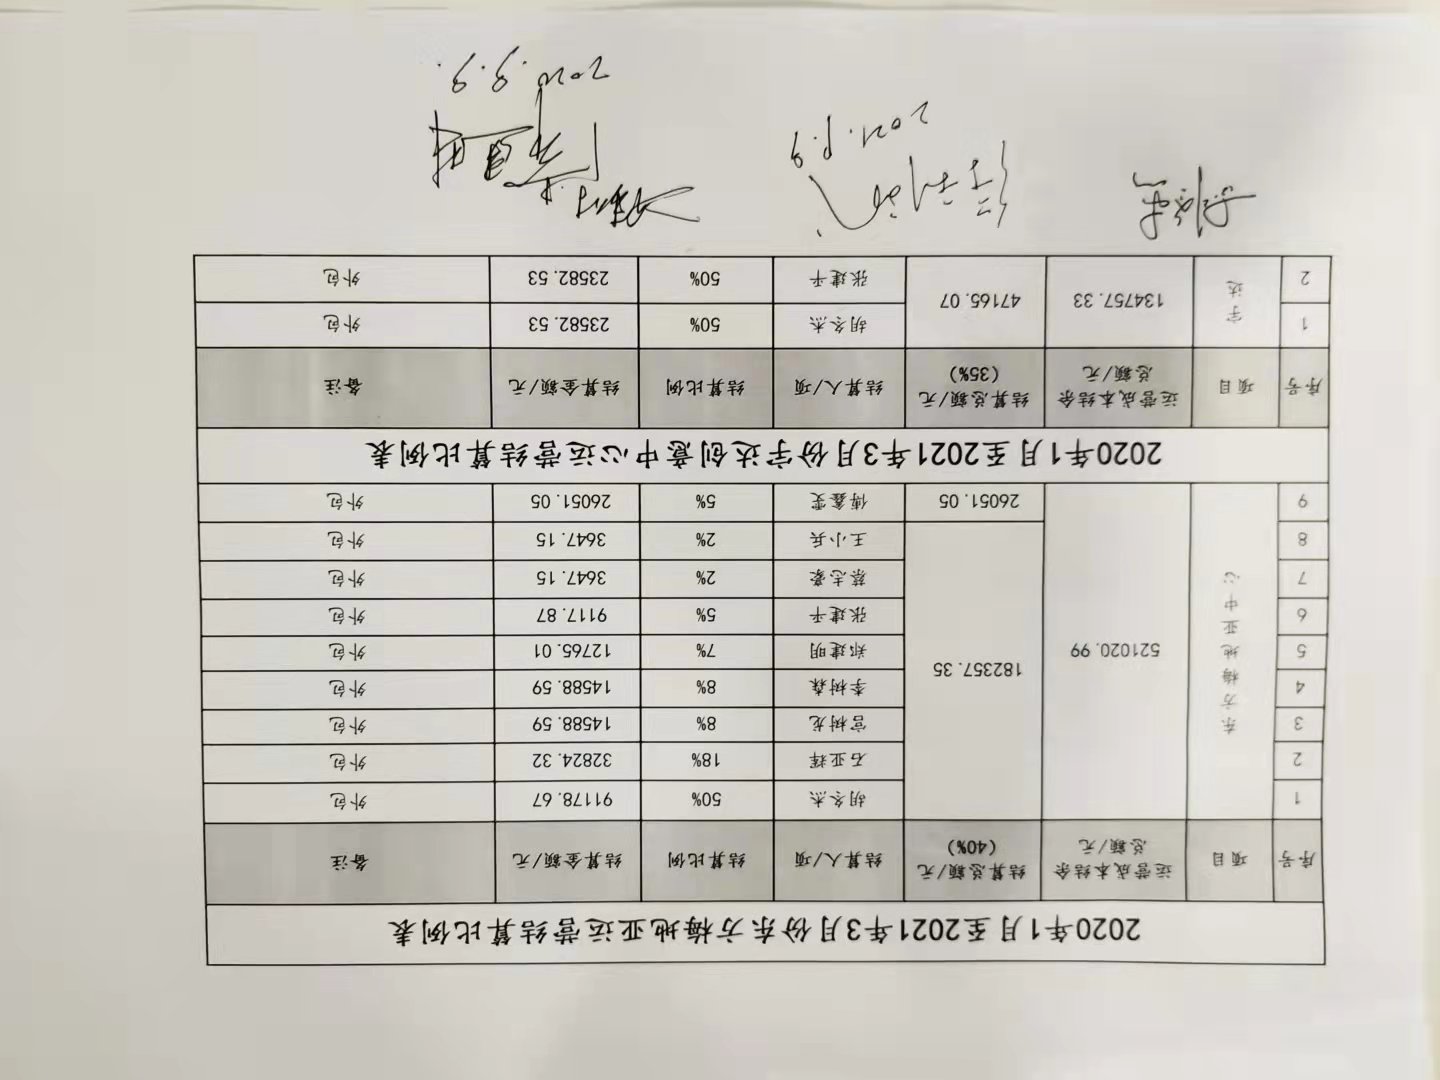 2020年1月至2021年3月份东方梅地亚运营结算比例表
序号 项目 运营成本结余总额/元 结算总额/元(40%) 结算人/项 结算比例 结算金额/元 备注
1 东方梅地亚中心 521020.99 182357.35 胡冬杰 50% 91178.67 外包
2 石亚辉 18% 32824.32 外包
3 宫树龙 8% 14588.59 外包
4 李树森 8% 14588.59 外包
5 郑建明 7% 12765.01 外包
6 张建子 5% 9117.87 外包
7 蔡志豪 2% 3647.15 外包
8 王小兵 2% 3647.15 外包
9 26051.05 傅鑫雯 5% 26051.05 外包
2020年1月至2021年3月份宇达创意中心运营结算比例表
序号 项目 运营成本结余总额/元 结算总额/元(35%) 结算人/项 结算比例 结算金额/元 备注
1 宇达 134757.33 47165.07 胡冬杰 50% 23582.53 外包
2 张建子 50% 23582.53 外包
2021.8.9